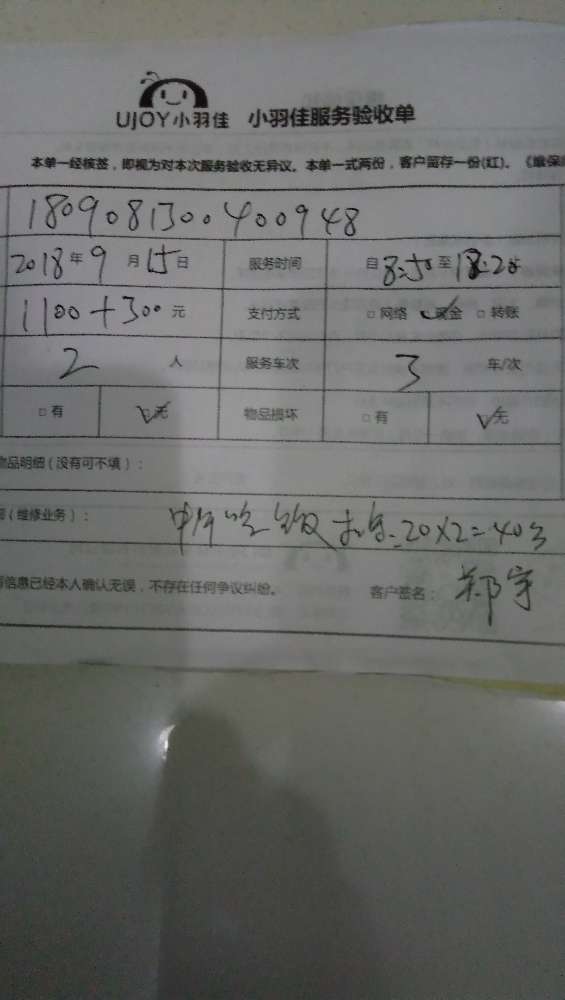 UJOY小羽佳 小羽佳服务验收单
本单一经核签，即视为对本次服务验收无异议。本单一式两份，客户留存一份(红)。《维保
1809081300400948
2018年9月15日 服务时间 自8:50至18:20
1100+300元 支付方式 □网络 ☑现金 □转账
2人 服务车次 3车/次
□有 ☑无 物品损坏 □有 ☑无
物品明细（没有可不填）：
（维修业务）： 中午吃饭 20×2=40
信息已经本人确认无误，不存在任何争议纠纷。 客户签名：郑宇